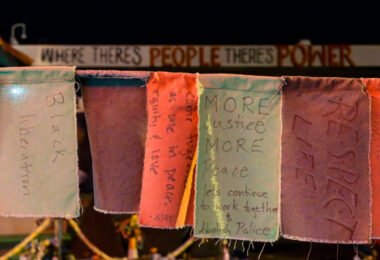 WHERE THERES PEOPLE THERES POWER
Black
liberation
Come together
as one in peace
equality & love
MORE
Justice
MORE
Peace
let's continue
to work together
&
Abolish Police
RESPECT
LIFE